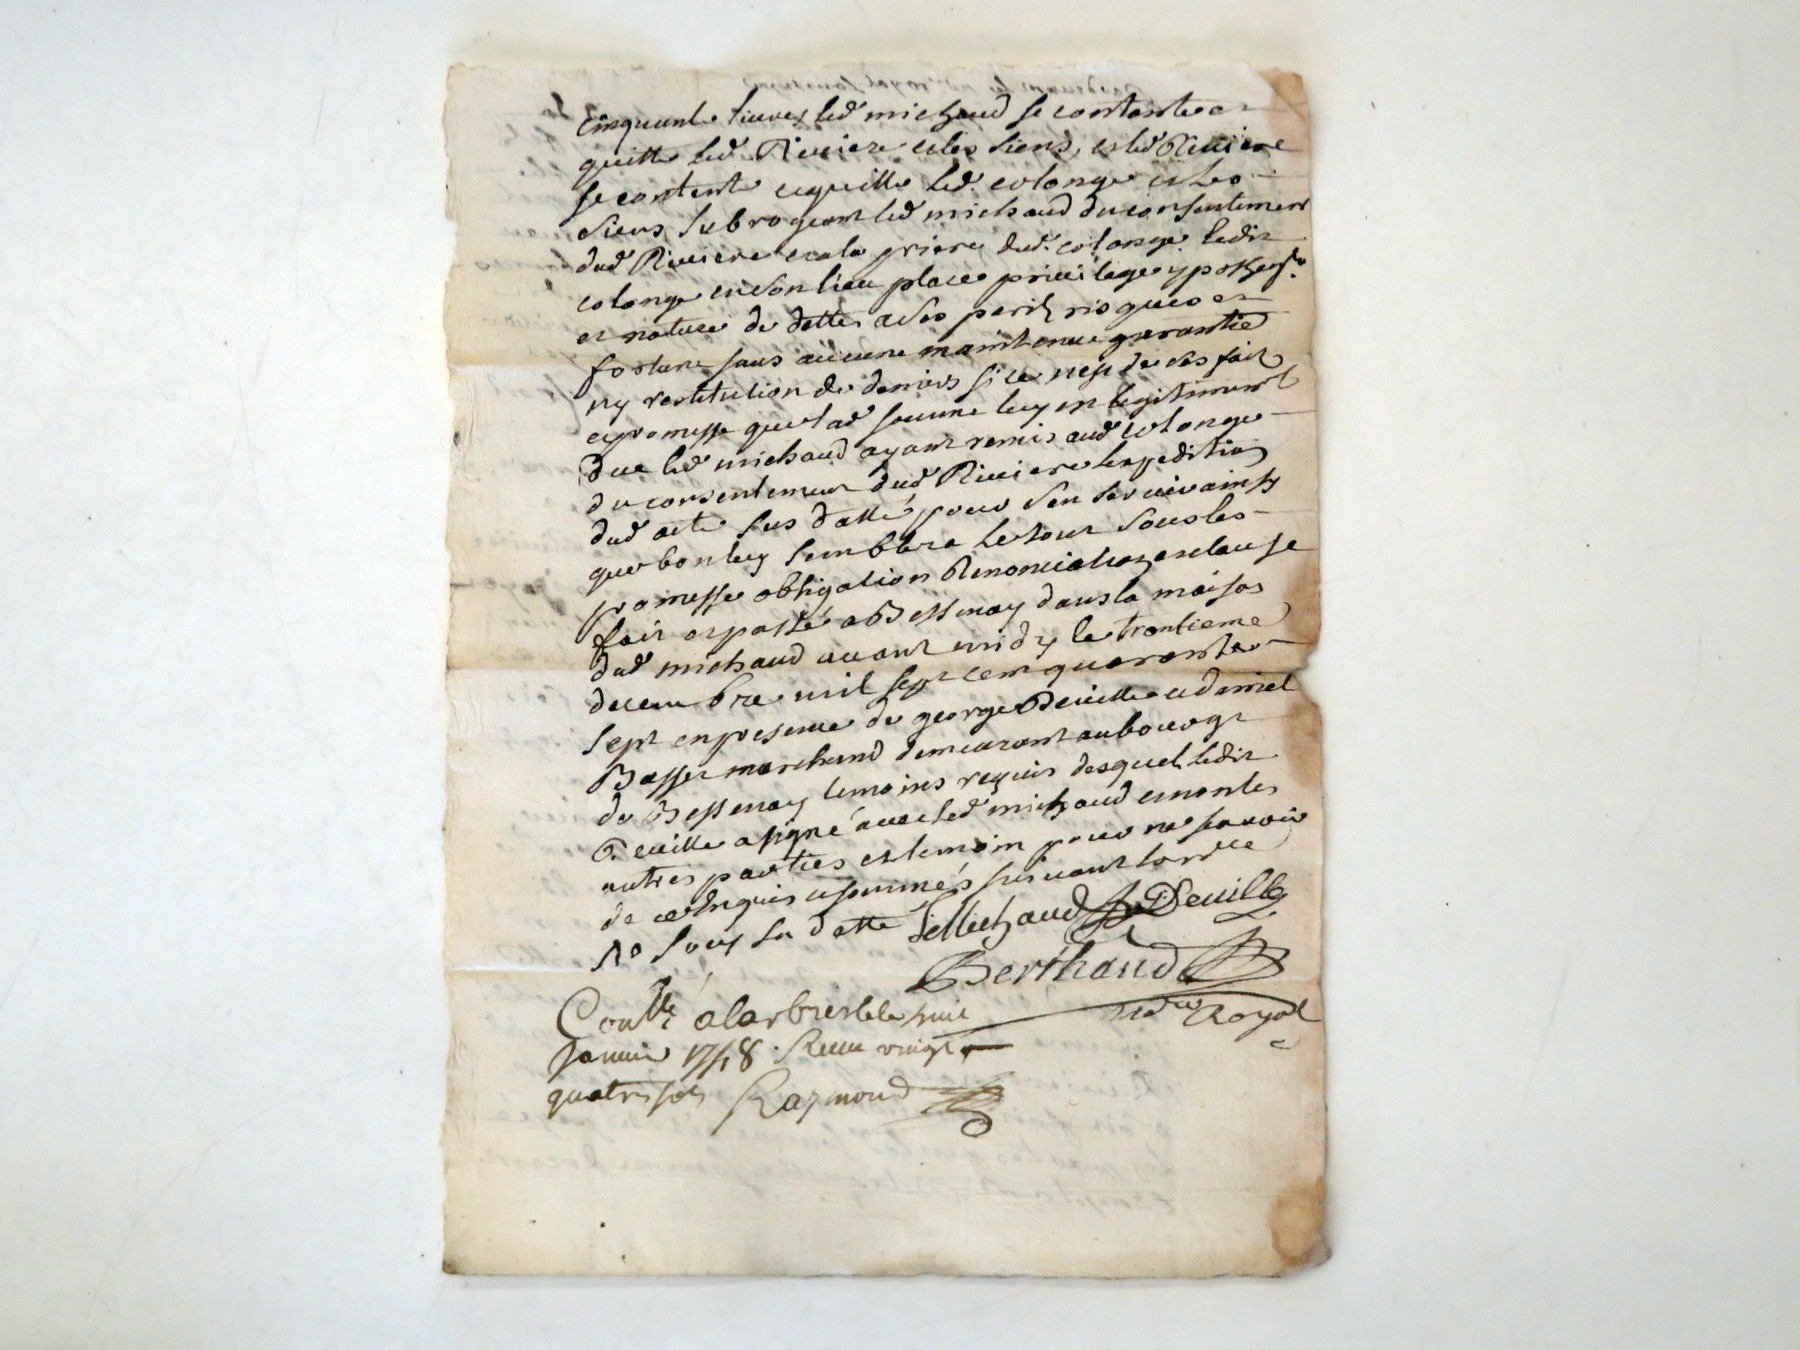 cinquante livres led michaud se contente et
quitte led. Riviere et les siens, et led Riviere
se content et quitte led. colonge et les
siens, subrogeant led michaud du consentement
dud Riviere et a la priere dud. colonge ledit
colonge en son lieu place privilege ypotheq.
et nature de dettes a ses perilz risques et
fortune sans aucune maintenue garantie
ny restitution de deniers si ce nest de ses fait
et promesse que lad somme luy est legitimement
due led michaud ayant remis aud colonge
du consentement dud Riviere lexpedition
dud acte sus datté, pour sen servir ainsy
que bon luy semblera le tout sous les
promesse obligation Renonciation et clause
fait et passé a Bessenay dans la maison
dud michaud avant midy le trentieme
decembre mil sept cent quarante
sept en presence de george Deville et daniel
Basset marchand demeurant au bourg
de Bessenay temoins requis desquels ledit
Deville a signé avec led michaud et non les
autres parties et temoin pour ne scavoir
de ce enquis et sommés suivant lord.ce
sous sa datte Michaud Deville
Berthaud
no.re Royal
Con.llé a larbresle le huit
Janvier 1748. Receu vingt
quatre sols Raymond